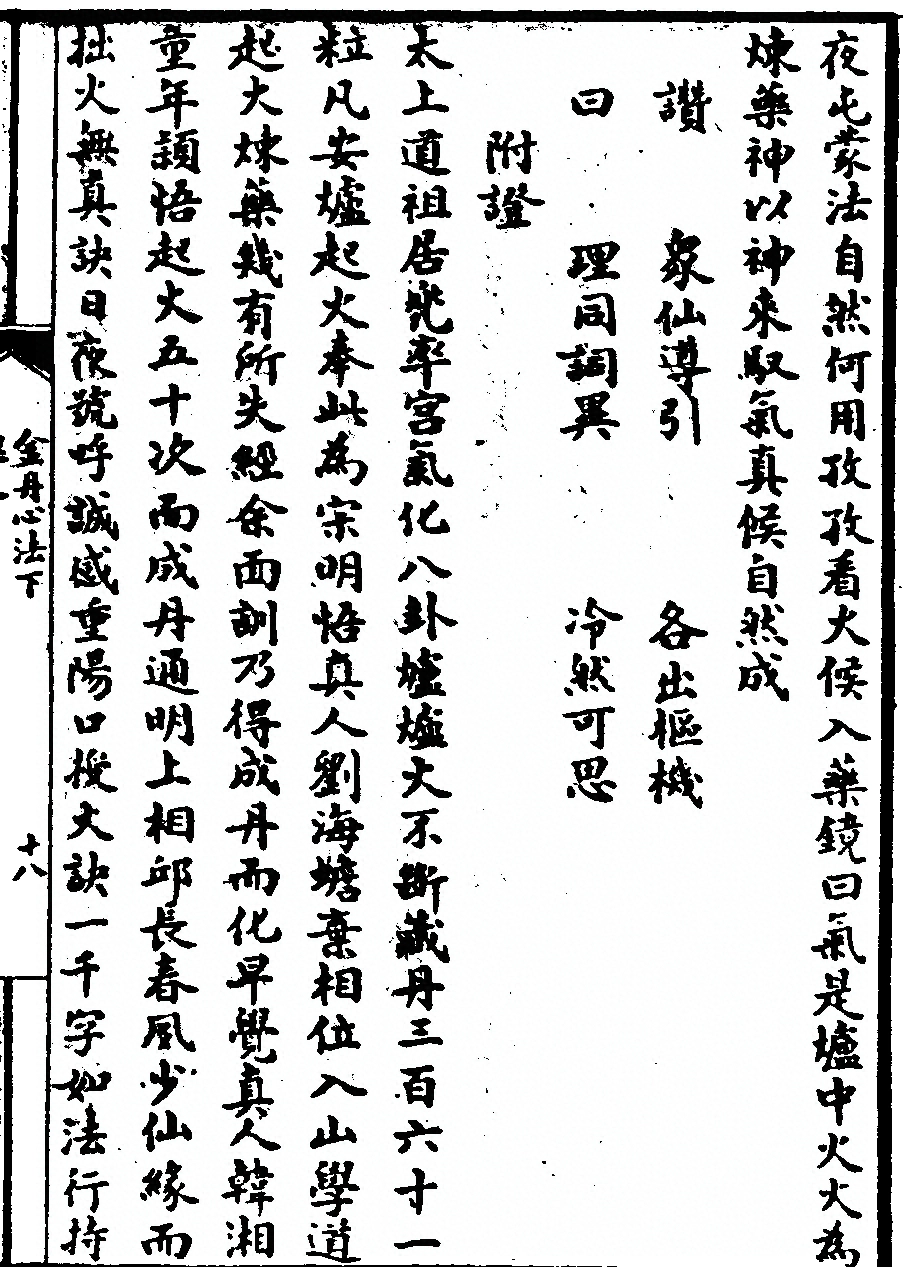 夜屯蒙法自然何用孜孜看火候入藥鏡曰氣是爐中火火為
煉藥神以神煉神來馭氣真候自然成
讚　眾仙導引　各出樞機
曰　理同詞異　冷然可思
附證
太上道祖居兜率宮氣化八卦爐爐火不斷藏丹三百六十一
粒凡安爐起火奉此為宗明悟真人劉海蟾棄相位入山學道
起火煉藥幾有所失經余面訓乃得成丹而化早覺真人韓湘
童年穎悟起火五十次而成丹通明上相邱長春夙少仙緣而
拙火無真訣日夜號呼誠感重陽口授火訣一千字如法行持
金丹心法下
十八